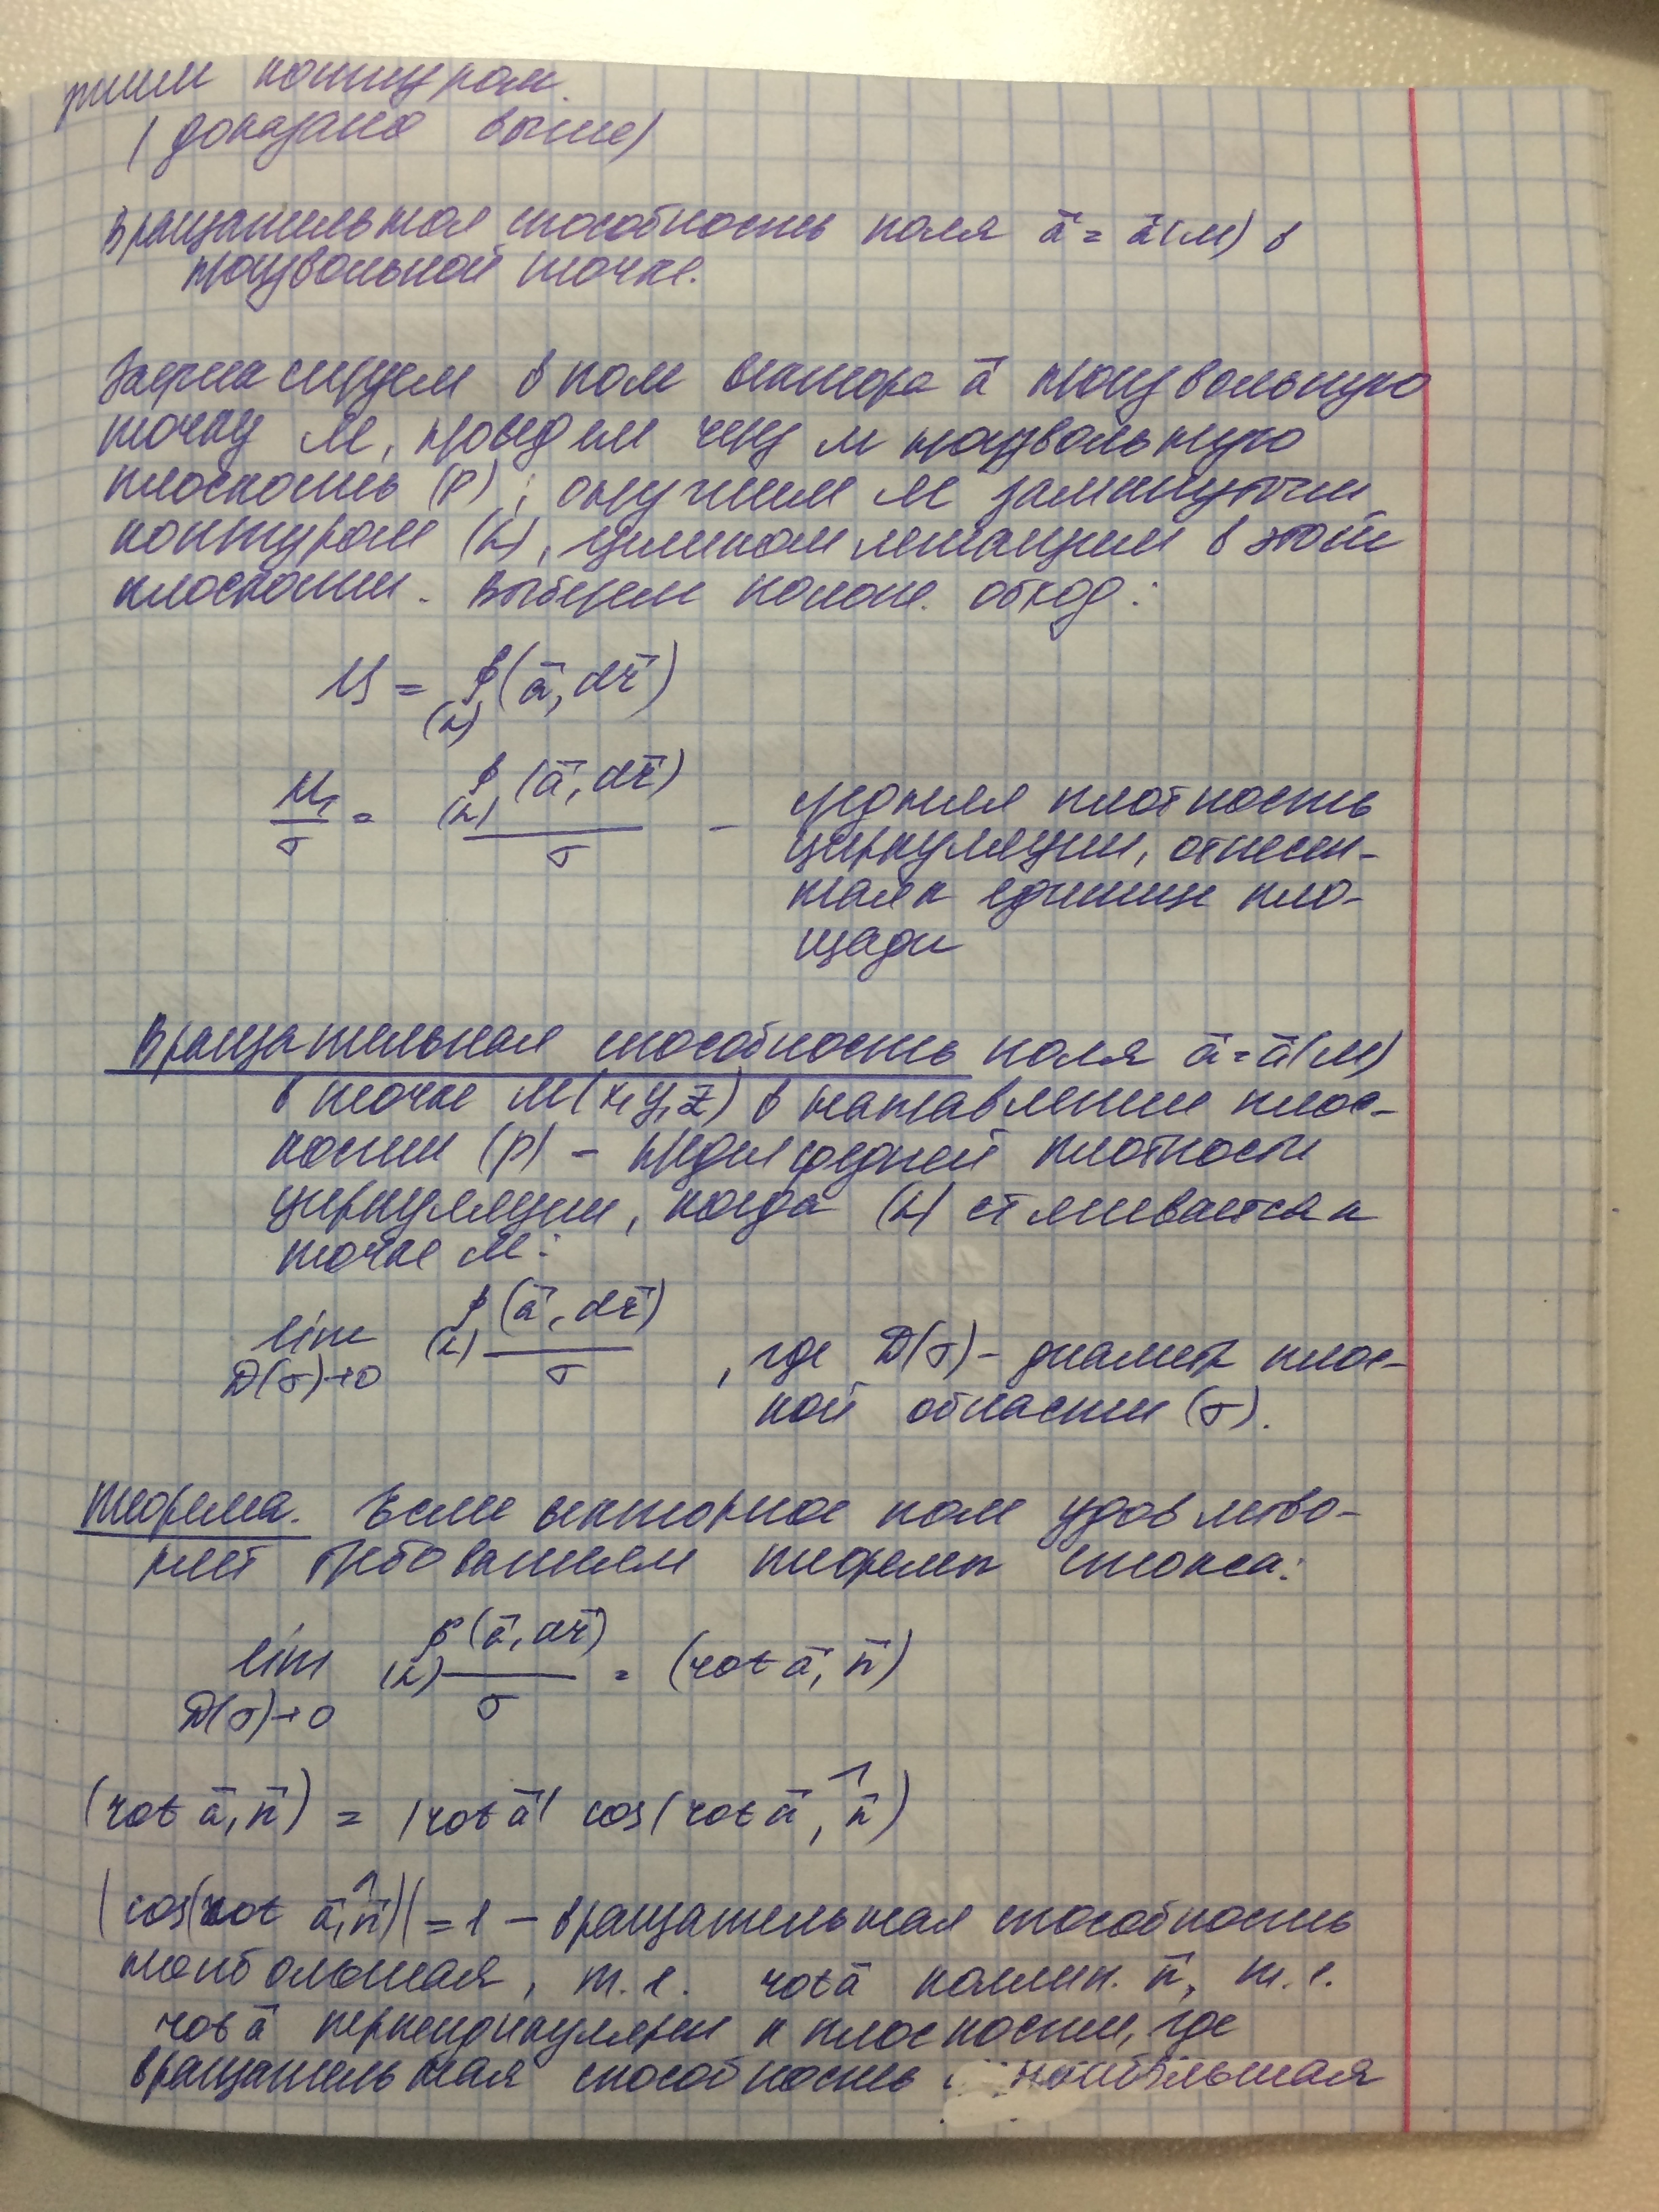 ршим контуром.
(доказано выше)
Вращательная способность поля a⃗ = a⃗(M) в
произвольной точке.
Зафиксируем в поле вектора a⃗ произвольную
точку M, проведем через M произвольную
плоскость (P); окружим M замкнутым
контуром (L), целиком лежащим в этой
плоскости. Выберем полож. обход:
Ц = ∮(L) (a⃗, dr⃗)
Ц/σ = ∮(L) (a⃗, dr⃗) / σ – средняя плотность
циркуляции, отнесен-
ная к единице пло-
щади
Вращательная способность поля a⃗ = a⃗(M)
в точке M(x, y, z) в направлении плос-
кости (P) – предел средней плотности
циркуляции, когда (L) стягивается к
точке M:
lim D(σ)→0 ∮(L) (a⃗, dr⃗) / σ , где D(σ) – диаметр плос-
кой области (σ).
Теорема. Если векторное поле удовлетво-
ряет требованиям теоремы Стокса:
lim D(σ)→0 ∮(L) (a⃗, dr⃗) / σ = (rot a⃗, n⃗)
(rot a⃗, n⃗) = |rot a⃗| cos(rot a⃗ ,^ n⃗)
|cos(rot a⃗ ,^ n⃗)| = 1 – вращательная способность
наибольшая, т.е. rot a⃗ коллин. n⃗, т.е.
rot a⃗ перпендикулярен к плоскости, где
вращательная способность наибольшая